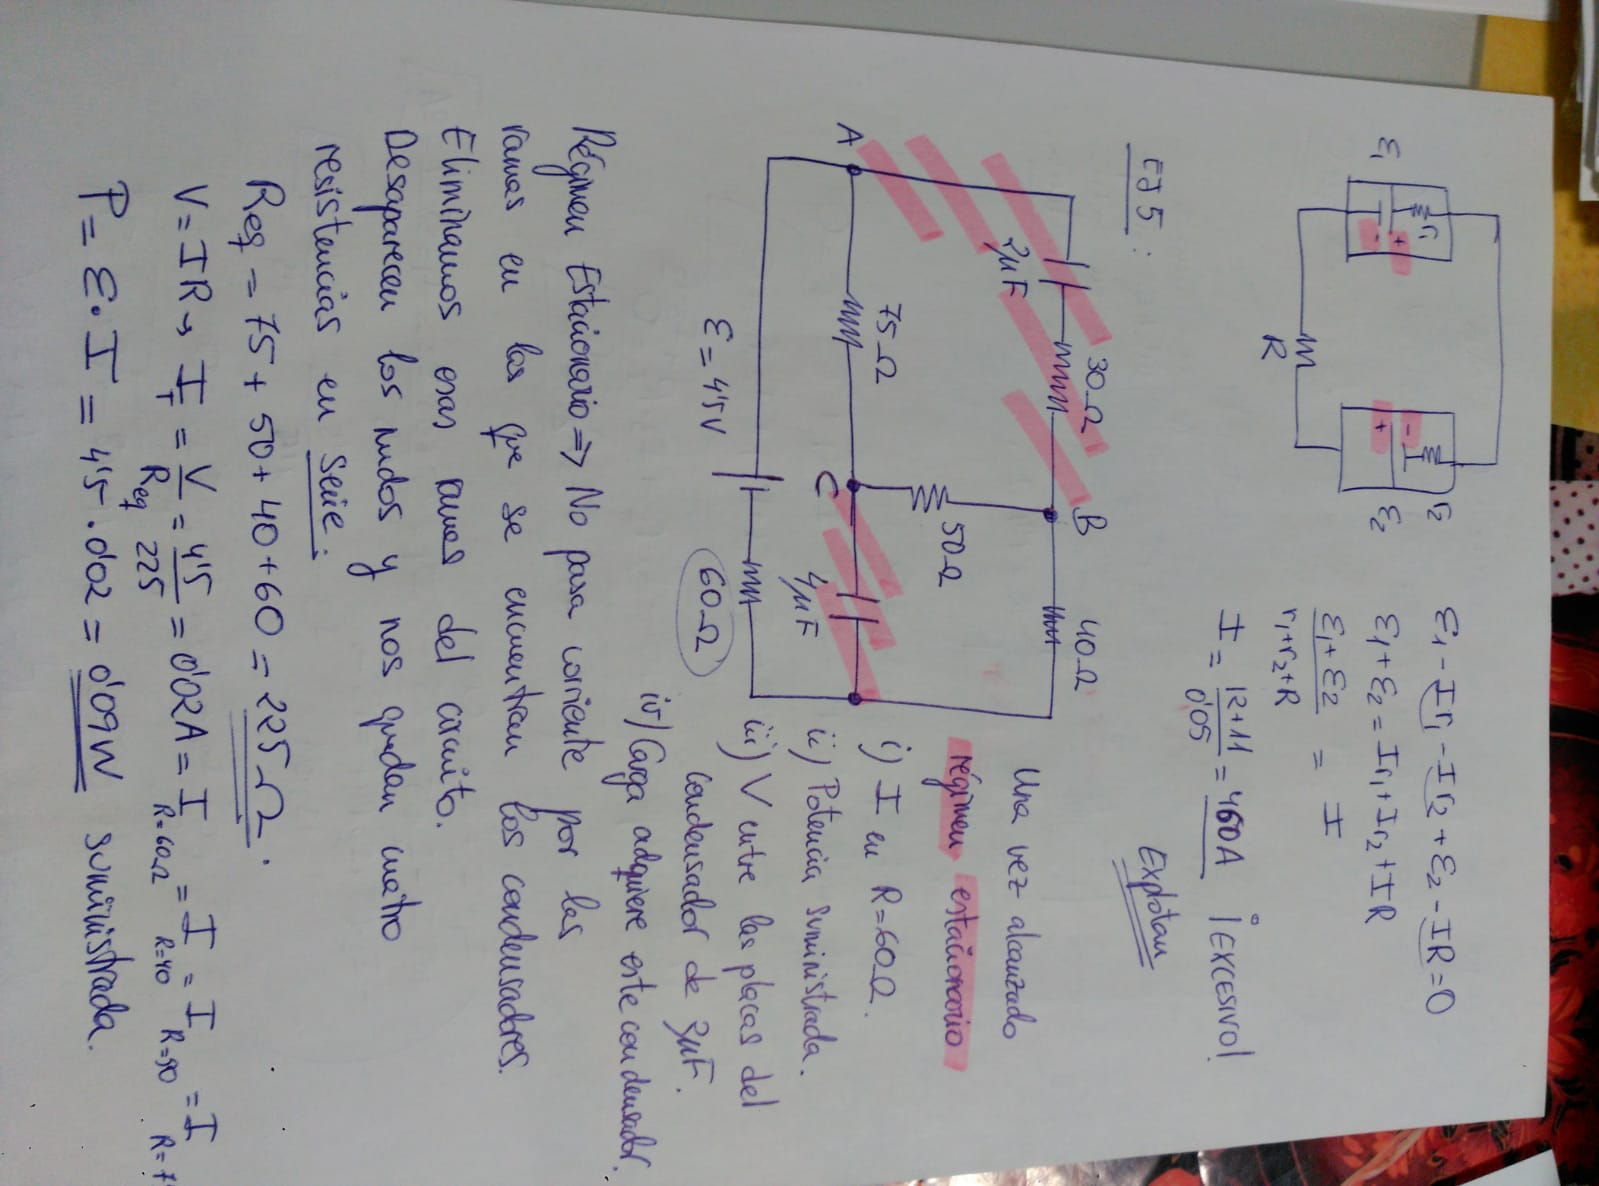 r₁
+
-
ε₁
R
r₂
-
+
ε₂
ε₁ - Ir₁ - Ir₂ + ε₂ - IR = 0
ε₁ + ε₂ = Ir₁ + Ir₂ + IR
ε₁ + ε₂ / r₁ + r₂ + R = I
I = 12+11 / 0'05 = 460A ¡EXCESIVO!
Explotan
EJ 5:
30Ω
B
40Ω
2μF
50Ω
75Ω
A
C
4μF
ε = 4'5V
60Ω
Una vez alcanzado
régimen estacionario
i) I en R=60Ω.
ii) Potencia suministrada.
iii) V entre las placas del
condensador de 2μF.
iv) Carga adquiere este condensador.
Régimen Estacionario ⇒ No pasa corriente por las
ramas en las que se encuentran los condensadores.
Eliminamos esas ramas del circuito.
Desaparecen los nudos y nos quedan cuatro
resistencias en serie.
Req = 75 + 50 + 40 + 60 = 225Ω.
V = IR → I_T = V / Req = 4'5 / 225 = 0'02A = I R=60Ω = I R=40 = I R=50 = I R=7
P = ε · I = 4'5 · 0'02 = 0'09W suministrada.